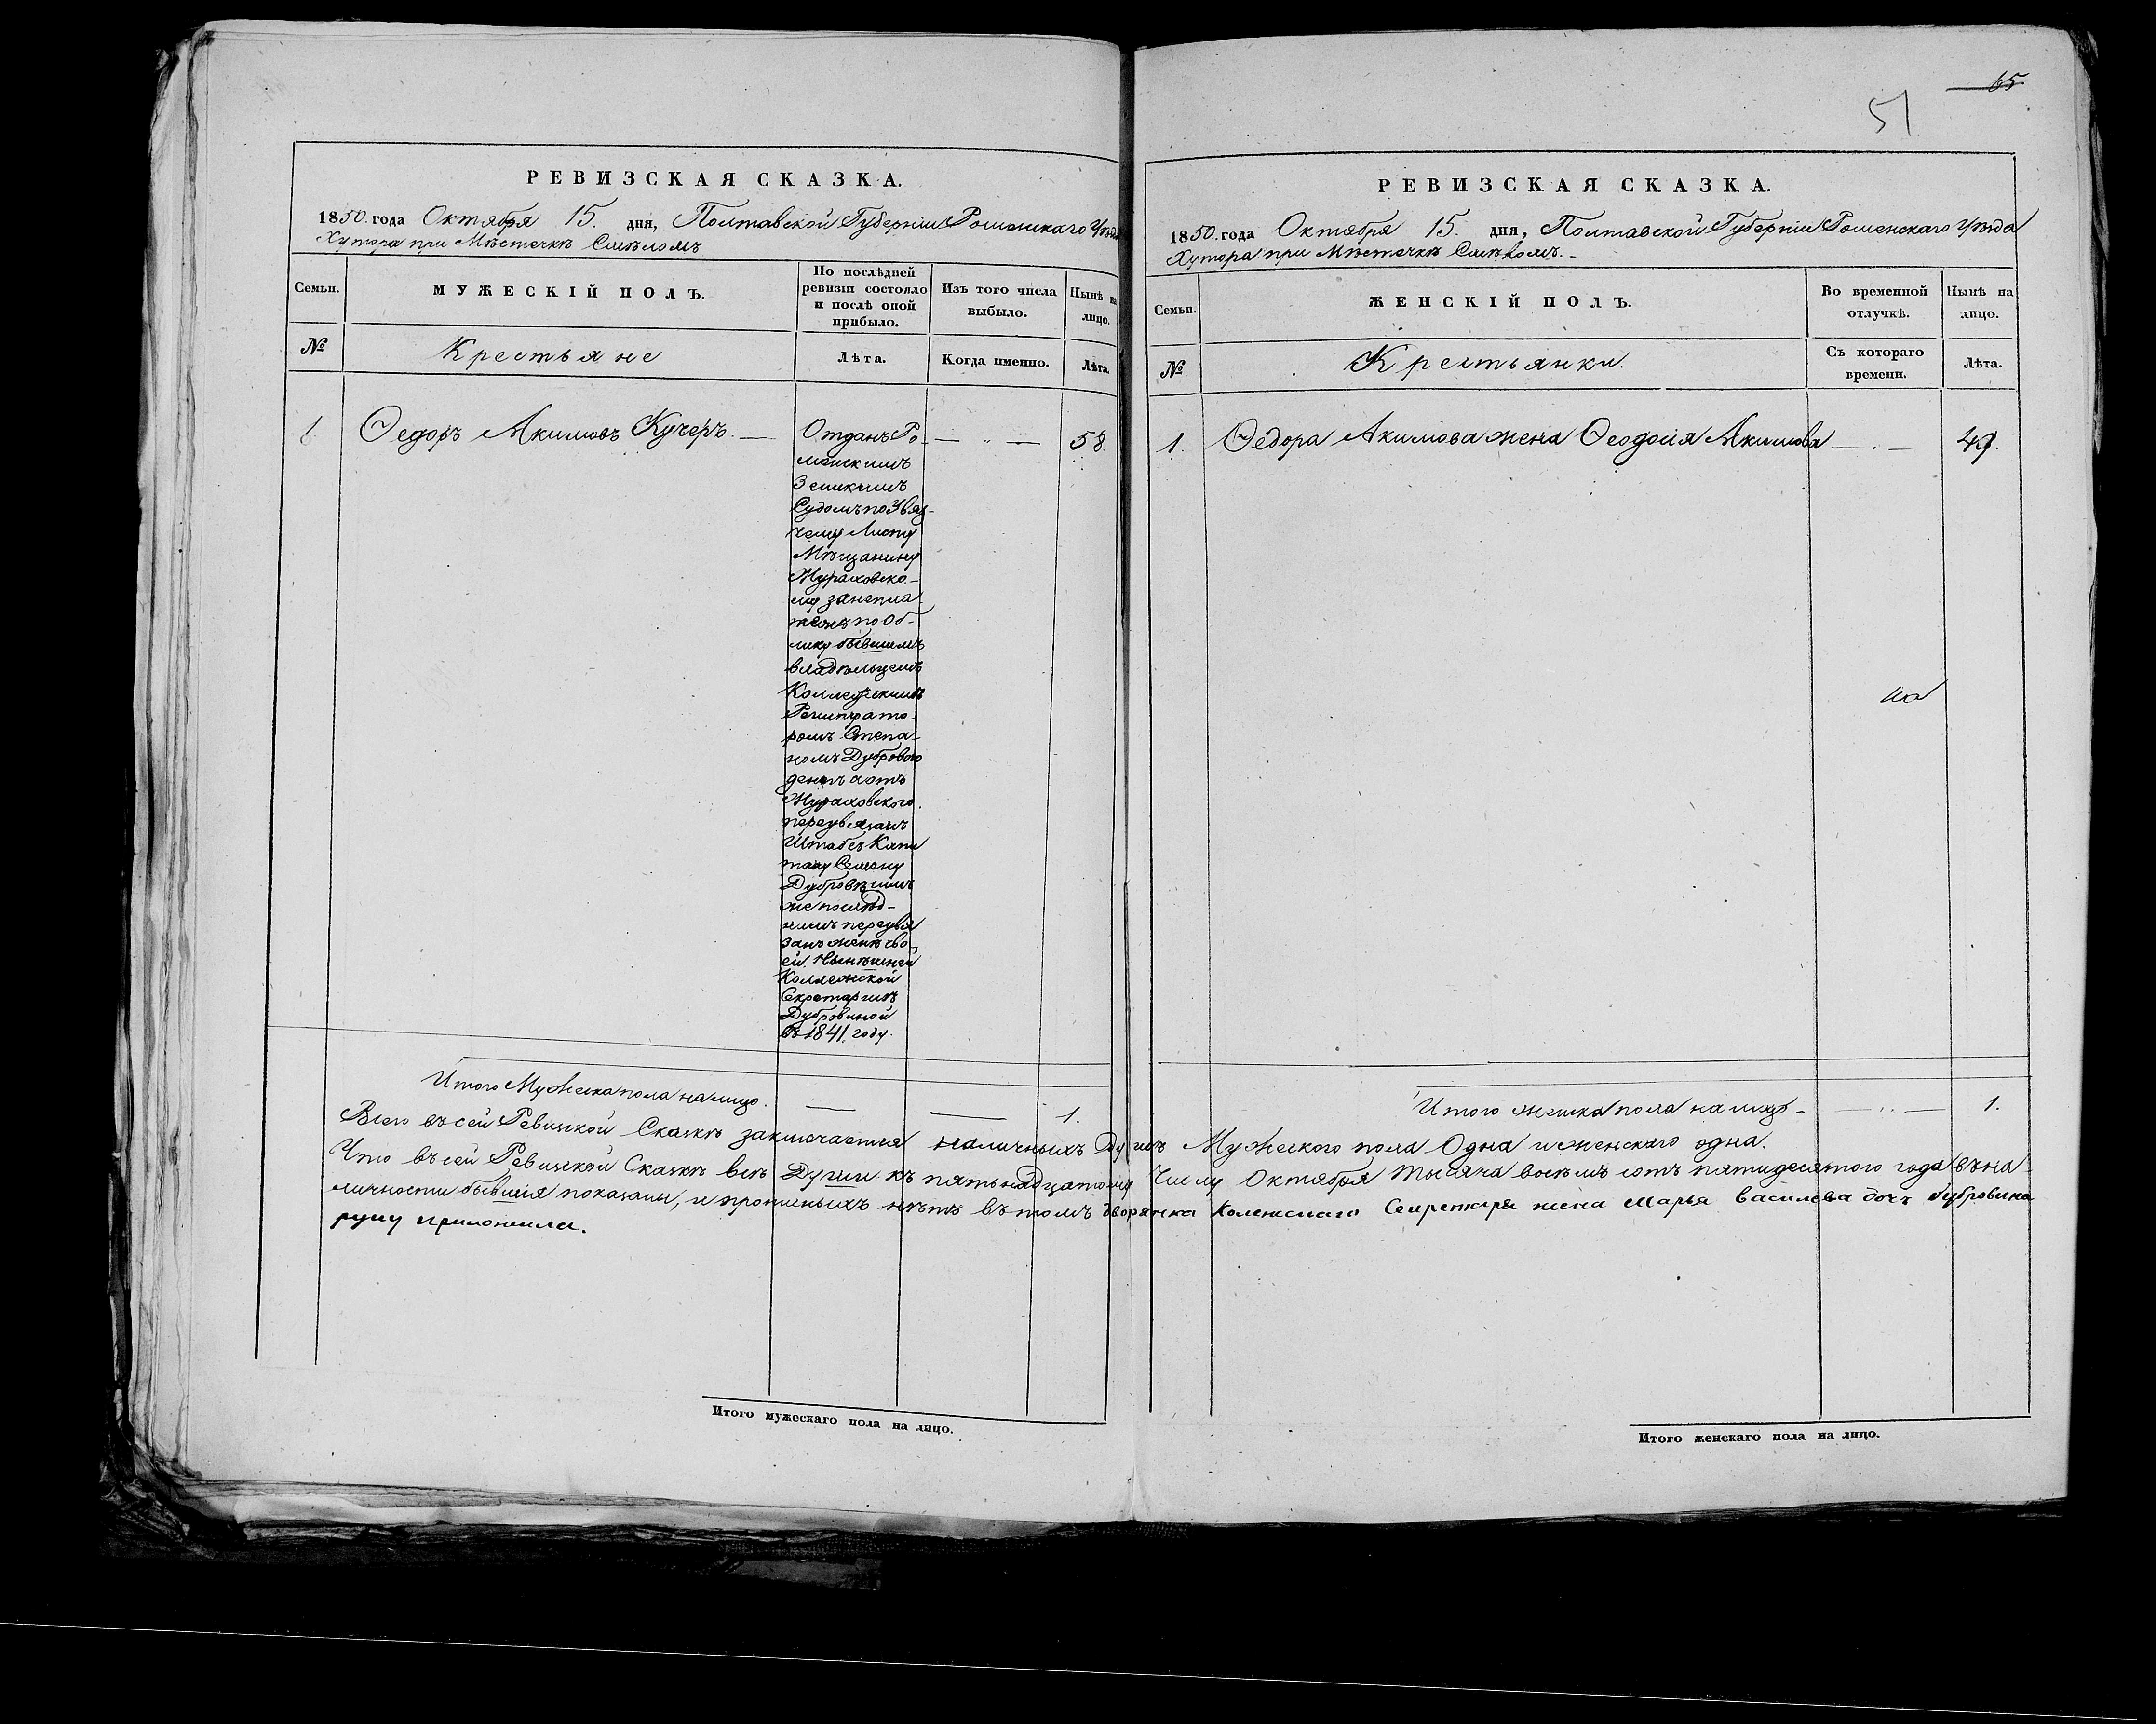 65
51
РЕВИЗСКАЯ СКАЗКА.
1850. года Октября 15. дня, Полтавской Губерніи Роменскаго Уѣзда
Хутора при Мѣстечкѣ Смѣломъ
Семьи.
МУЖЕСКІЙ ПОЛЪ.
По послѣдней
ревизіи состояло
и послѣ оной
прибыло.
Изъ того числа
выбыло.
Нынѣ на
лицо.
№
Крестьяне
Лѣта.
Когда именно.
Лѣта.
1 Ѳедоръ Акимовъ Кучеръ. — Отданъ Ро- — „ — 58.
менскимъ
Земскимъ
Судомъ по Увяз-
чему Листу
Мѣщанину
Жураховско-
му за непла-
тежъ по Об-
лику бывшимъ
владѣльцемъ
Коллежскимъ
Регистрато-
ромъ Степа-
номъ Дубровою
денегъ а отъ
Жураховского
переувязанъ
Штабсъ Капи
тану Семену
Дубровѣ симъ
же послѣд-
нимъ переувя
занъ женѣ сво-
ей. Нынѣшней
Колежской
Секретаршѣ
Дубровиной
въ 1841. году.
Итого Мужеска пола на лицо. — — 1.
Итого мужескаго пола на лицо.
РЕВИЗСКАЯ СКАЗКА.
1850. года Октября 15. дня, Полтавской Губерніи Роменскаго Уѣзда
Хутора при Мѣстечкѣ Смѣломъ. -
Семьи.
ЖЕНСКІЙ ПОЛЪ.
Во временной
отлучкѣ.
Нынѣ на
лицо.
№
Крестьянки.
Съ котораго
времени.
Лѣта.
1. Ѳедора Акимова жена Ѳеодосія Акимова — . — 49.
Итого женска пола на лицо - — „ — 1.
Всего въ сей Ревизской Сказкѣ заключается наличныхъ Душъ Мужеского пола Одна и женскаго одна.
Что въ сей Ревизской Сказкѣ всѣ Души къ пятьнадцатому Числу Октября тысяча восемь сотъ пятидесятого года въ на-
личности бывшія показаны, и прописныхъ нѣтъ въ томъ дворянка Колежскаго Секретаря жена Марья Васильева дочь дубровина
руку приложила.
Итого женскаго пола на лицо.